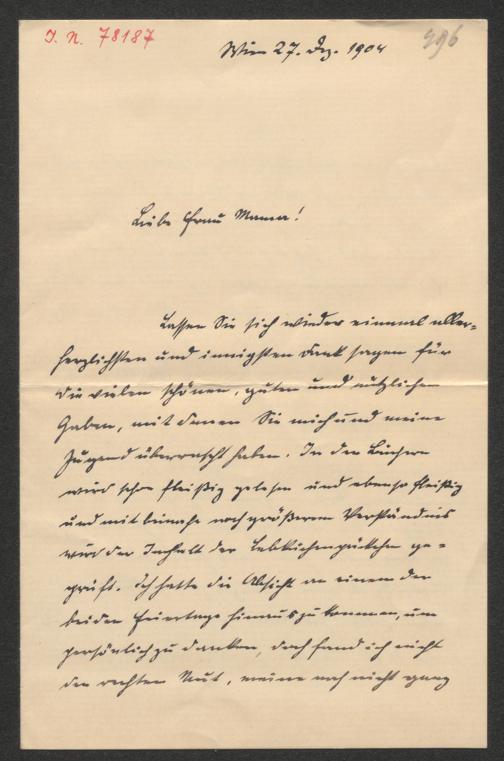 I. N. 78187
Wien 27. Dez. 1904
296
Liebe Frau Mama!
Lassen Sie sich wieder einmal aller-
herzlichsten und innigsten Dank sagen für
die vielen schönen, guten und nützlichen
Gaben, mit denen Sie mich und meine
Jugend überrascht haben. In den Büchern
wird schon fleißig gelesen und ebenso fleißig
und mit beinahe noch größerem Verständnis
wird der Inhalt der Lebkuchenpäckchen ge-
prüft. Ich hatte die Absicht an einem der
beiden Feiertage hinauszukommen, um
persönlich zu danken, doch fand ich nicht
den rechten Mut, meine noch nicht ganz